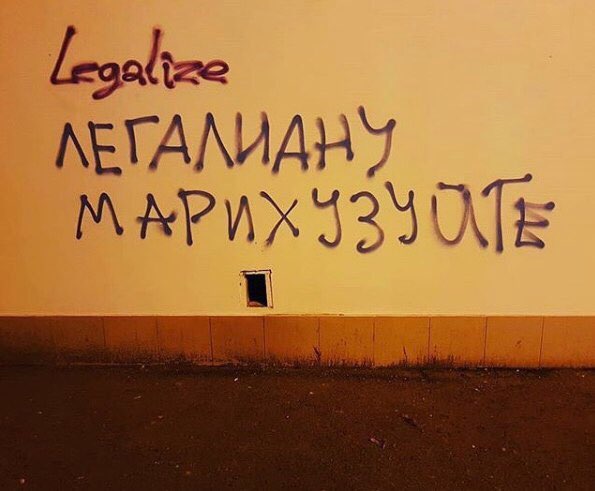 Legalize
ЛЕГАЛИАНУ
МАРИХУЗУЙТЕ